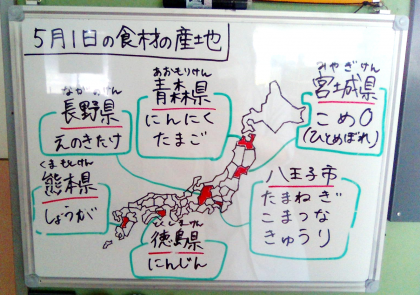 5月1日の食材の産地
ながのけん
長野県
えのきたけ
あおもりけん
青森県
にんにく
たまご
みやぎけん
宮城県
こめ
(ひとめぼれ)
くまもとけん
熊本県
しょうが
とくしまけん
徳島県
にんじん
八王子市
たまねぎ
こまつな
きゅうり